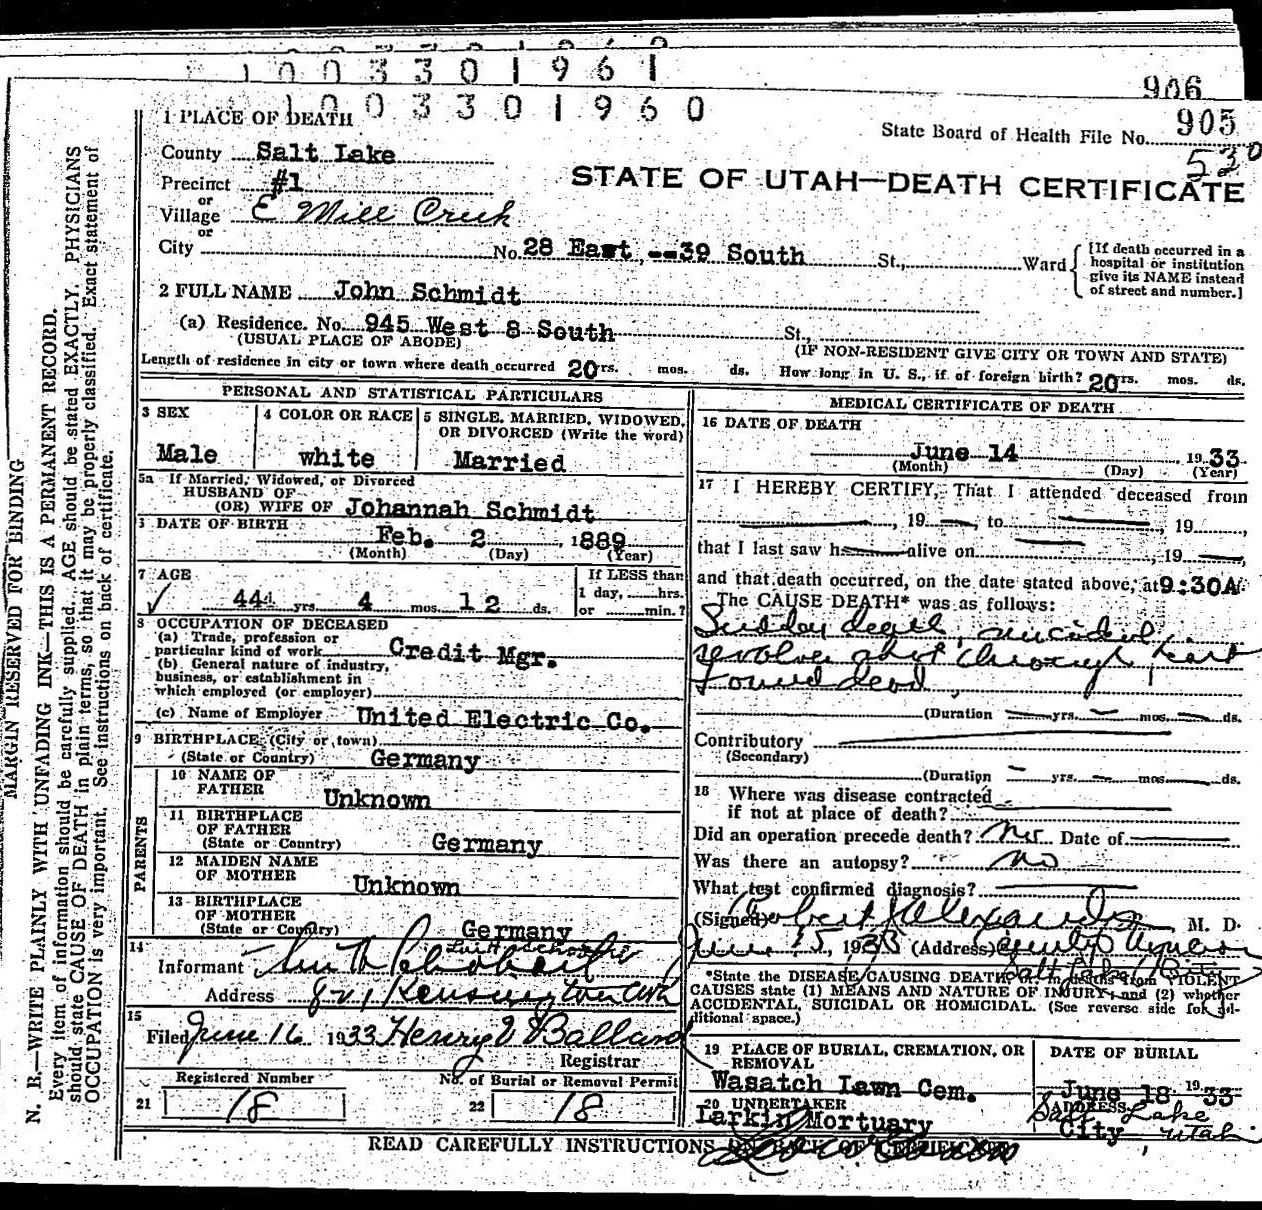 1003301961
906
1003301960
905
State Board of Health File No.
530
1 PLACE OF DEATH
County Salt Lake
Precinct #1
STATE OF UTAH—DEATH CERTIFICATE
or
Village E Mill Creek
or
City No. 28 East --39 South St., Ward
[If death occurred in a
hospital or institution
give its NAME instead
of street and number.]
2 FULL NAME John Schmidt
(a) Residence. No. 945 West 8 South St.,
(USUAL PLACE OF ABODE)
(IF NON-RESIDENT GIVE CITY OR TOWN AND STATE)
Length of residence in city or town where death occurred 20 yrs. mos. ds. How long in U. S., if of foreign birth? 20 yrs. mos. ds.
PERSONAL AND STATISTICAL PARTICULARS
3 SEX
Male
4 COLOR OR RACE
white
5 SINGLE, MARRIED, WIDOWED,
OR DIVORCED (Write the word)
Married
5a If Married, Widowed, or Divorced
HUSBAND OF
(OR) WIFE OF Johannah Schmidt
DATE OF BIRTH
Feb. 2, 1889
(Month) (Day) (Year)
7 AGE
44 yrs. 4 mos. 12 ds.
If LESS than
1 day, hrs.
or min.?
8 OCCUPATION OF DECEASED
(a) Trade, profession or
particular kind of work Credit Mgr.
(b) General nature of industry,
business, or establishment in
which employed (or employer)
(c) Name of Employer United Electric Co.
9 BIRTHPLACE (City or town)
(State or Country) Germany
PARENTS
10 NAME OF
FATHER Unknown
11 BIRTHPLACE
OF FATHER
(State or Country) Germany
12 MAIDEN NAME
OF MOTHER Unknown
13 BIRTHPLACE
OF MOTHER
(State or Country) Germany
14
Informant
Address 821 Kensington Ave
15
Filed June 16 1933 Henry V Ballard
Registrar
Registered Number
21 18
No. of Burial or Removal Permit
22 18
MEDICAL CERTIFICATE OF DEATH
16 DATE OF DEATH
June 14 1933
(Month) (Day) (Year)
17 I HEREBY CERTIFY, That I attended deceased from
, 19 , to , 19
that I last saw h alive on , 19
and that death occurred, on the date stated above, at 9:30A
The CAUSE DEATH* was as follows:
Sudden death, suicidal,
revolver shot through heart
Found dead
(Duration yrs. mos. ds.
Contributory
(Secondary)
(Duration yrs. mos. ds.
18 Where was disease contracted
if not at place of death?
Did an operation precede death? No Date of
Was there an autopsy? No
What test confirmed diagnosis?
(Signed) Alexander M. D.
June 15, 1933 (Address) County
Salt Lake
*State the DISEASE CAUSING DEATH, or in deaths from VIOLENT
CAUSES state (1) MEANS AND NATURE OF INJURY; and (2) whether
ACCIDENTAL, SUICIDAL OR HOMICIDAL. (See reverse side for ad-
ditional space.)
19 PLACE OF BURIAL, CREMATION, OR
REMOVAL
Wasatch Lawn Cem.
DATE OF BURIAL
June 18 1933
20 UNDERTAKER
Larkin Mortuary
ADDRESS
Salt Lake
City, Utah
READ CAREFULLY INSTRUCTIONS ON BACK OF CERTIFICATE
MARGIN RESERVED FOR BINDING
N. B.—WRITE PLAINLY WITH UNFADING INK—THIS IS A PERMANENT RECORD.
Every item of information should be carefully supplied. AGE should be stated EXACTLY. PHYSICIANS
should state CAUSE OF DEATH in plain terms, so that it may be properly classified. Exact statement of
OCCUPATION is very important. See instructions on back of certificate.